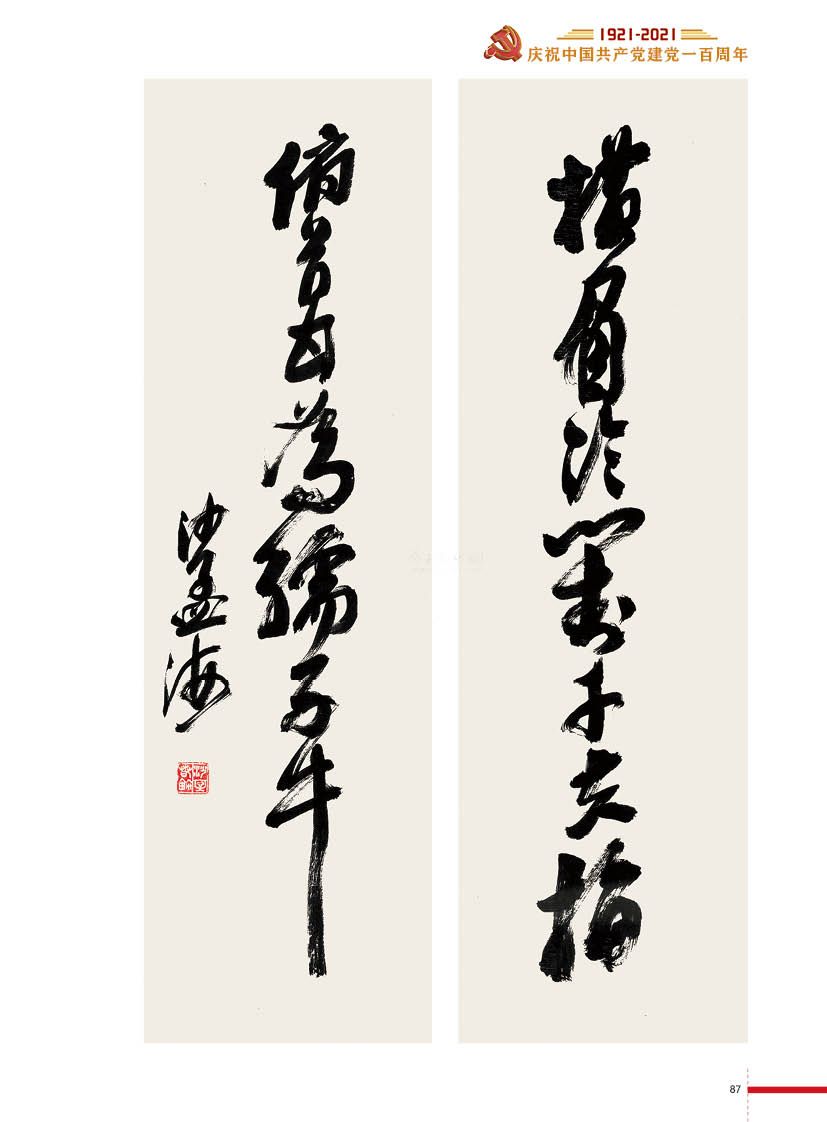 1921-2021
庆祝中国共产党建党一百周年
横眉冷對千夫指
俯首甘為孺子牛
沙孟海
87